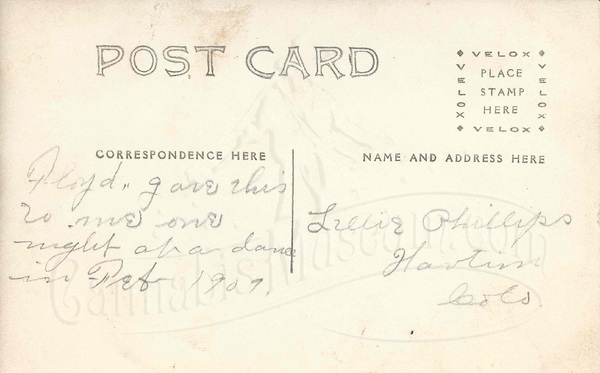 POST CARD
VELOX
VELOX
PLACE
STAMP
HERE
VELOX
VELOX
CORRESPONDENCE HERE
NAME AND ADDRESS HERE
Floyd, gave this
to me one
night at a dance
in Feb 1907.
Lillie Phillips
Colo.
CannabisMuseum.com